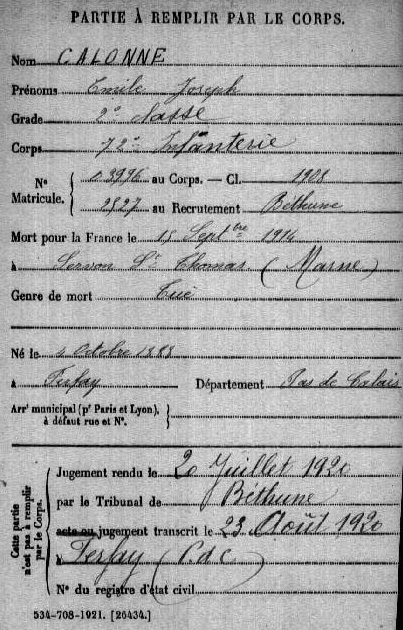 PARTIE À REMPLIR PAR LE CORPS.
Nom CALONNE
Prénoms Emile Joseph
Grade 2e classe
Corps 72e Infanterie
No Matricule. { 03996 au Corps. — Cl. 1908
2527 au Recrutement Béthune
Mort pour la France le 15 Septbre 1914
à Servon St Thomas (Marne)
Genre de mort Tué
Né le Octobre 1888
à Ferfay Département Pas de Calais
Arrt municipal (pr Paris et Lyon), à défaut rue et No. }
Cette partie n'est pas à remplir par le Corps.
Jugement rendu le 20 Juillet 1920
par le Tribunal de Béthune
acte ou jugement transcrit le 23 Août 1920
à Ferfay (PdC)
No du registre d'état civil
534-708-1921. [26434.]